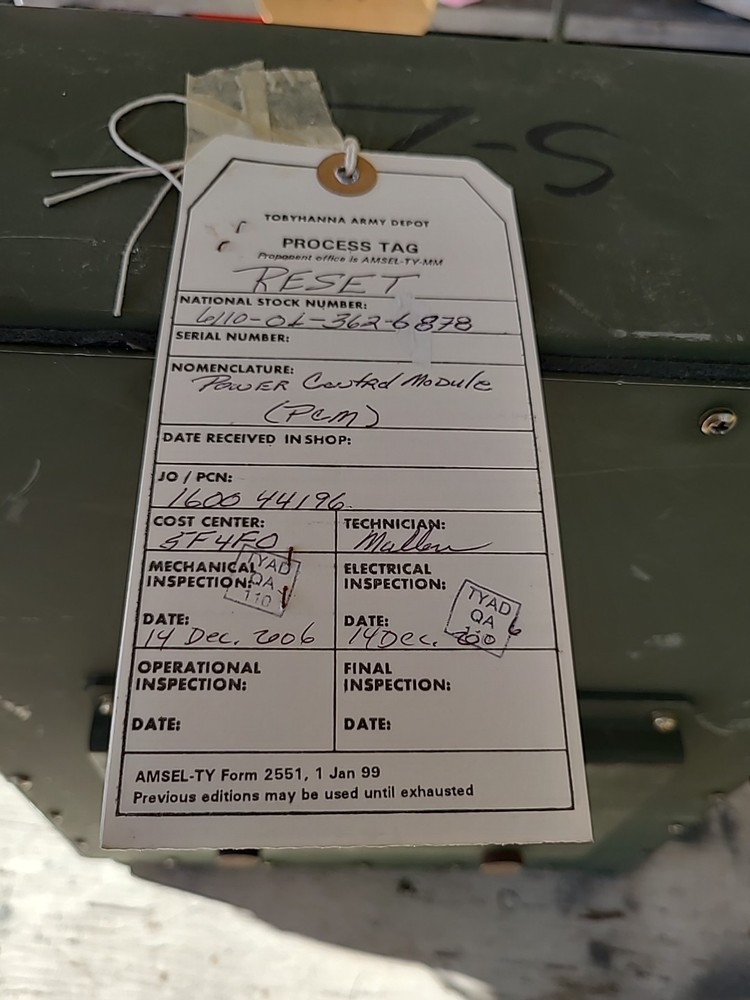 Z-S
TOBYHANNA ARMY DEPOT
PROCESS TAG
Proponent office is AMSEL-TY-MM
RESET
NATIONAL STOCK NUMBER:
6110-01-362-6878
SERIAL NUMBER:
NOMENCLATURE:
Power Control Module
(PCM)
DATE RECEIVED IN SHOP:
JO / PCN:
1600 44196
COST CENTER:
5F4F0
TECHNICIAN:
MECHANICAL
INSPECTION:
TYAD
QA
110
DATE:
14 Dec. 2006
ELECTRICAL
INSPECTION:
TYAD
QA
DATE:
14 Dec.
OPERATIONAL
INSPECTION:
DATE:
FINAL
INSPECTION:
DATE:
AMSEL-TY Form 2551, 1 Jan 99
Previous editions may be used until exhausted